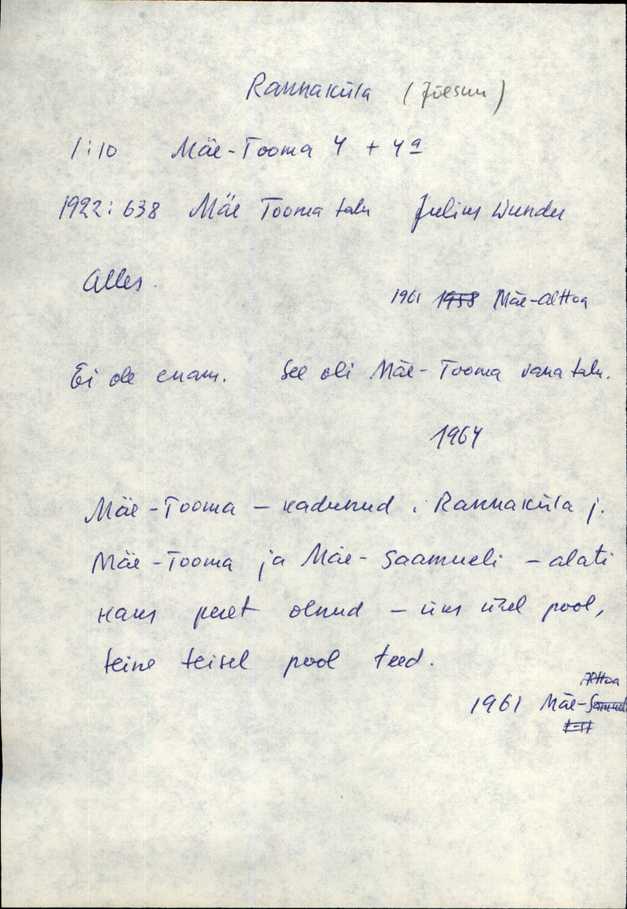 Rannaküla (Jõesuu)
1:10 Mäe-Tooma 4 + 4a
1922: 638 Mäe Tooma talu Julius Wunder
Alles.
1961 1958 Mäe-Alttoa
Ei ole enam. See oli Mäe-Tooma vana talu.
1964
Mäe-Tooma – kadunud. Rannaküla j.
Mäe-Tooma ja Mäe-Saamueli – alati
kaks peret olnud – üks ühel pool,
teine teisel pool teed.
Alttoa
1961 Mäe-